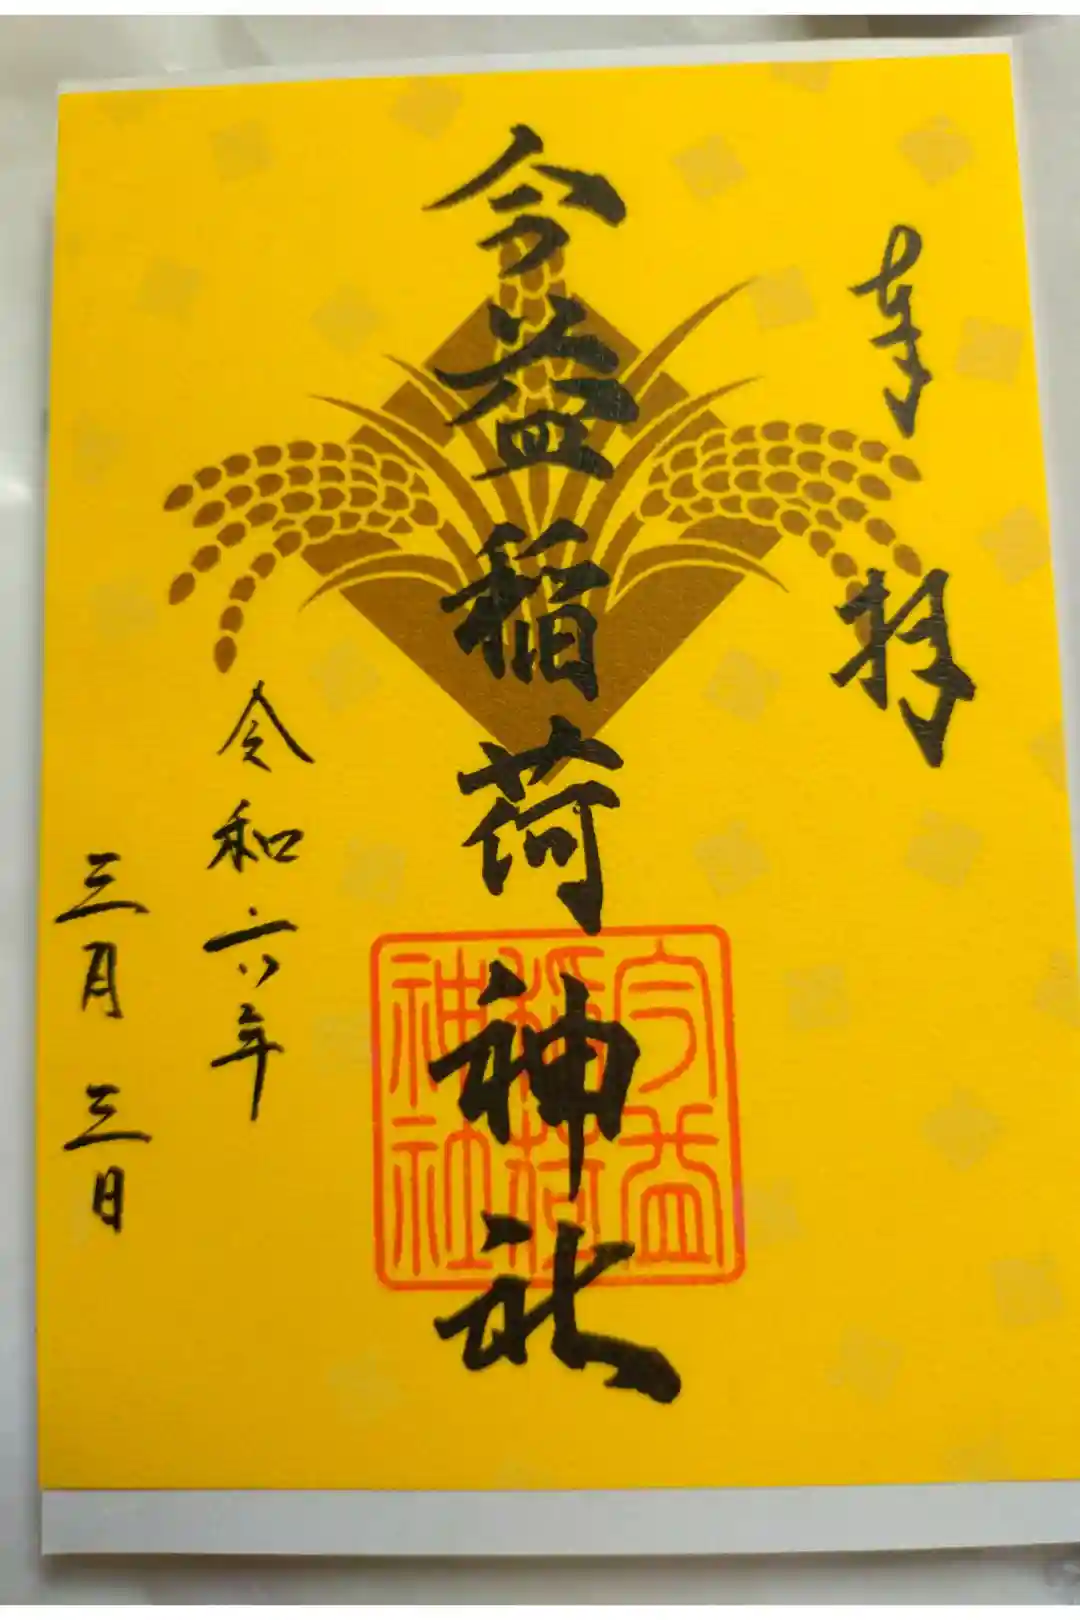 奉拝
今益稲荷神社
今益
稲荷
神社
令和六年
三月三日